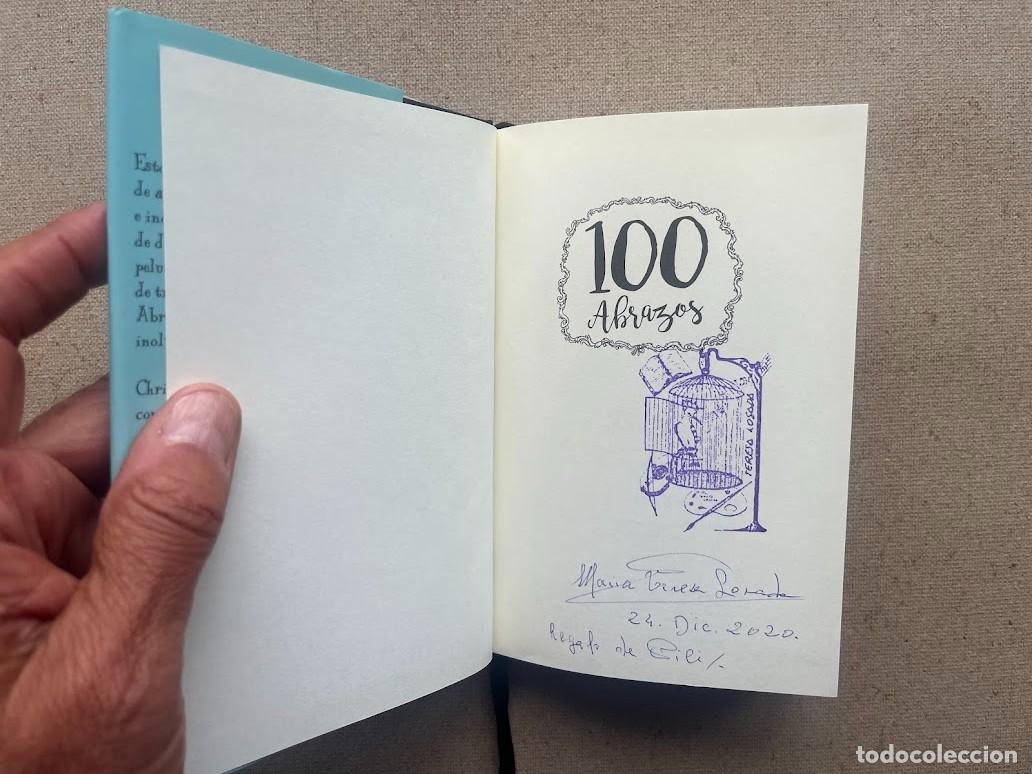 Este
de a
e in
de d
pelu
de t
Abr
inol
Chri
con
100
Abrazos
TERESA LOSADA
Maria Teresa Losada
24. Dic. 2020.
Regalo de Pili
todocoleccion